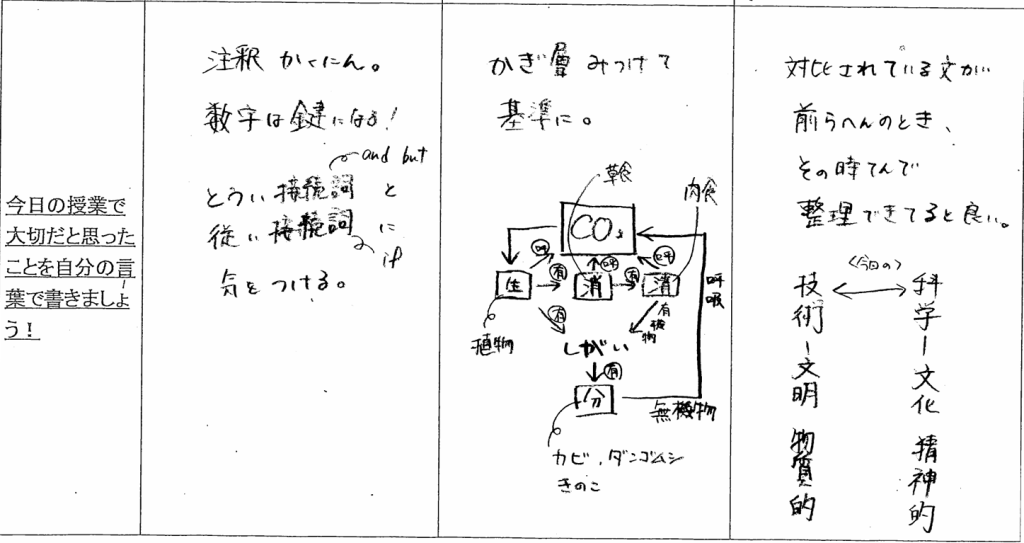 今日の授業で
大切だと思った
ことを自分の言
葉で書きましょ
う!
注釈 かくにん。
数字は鍵になる!
and but
とうい接続詞と
従い接続詞に
if
気をつける。
かぎ層 みつけて
基準に。
草食
肉食
CO₂
呼
呼
呼
生
有
消
有
消
呼吸
植物
有
有機物
しがい
有
分
無機物
カビ、ダンゴムシ
きのこ
対比されている文が
前らへんのとき、
その時てんで
整理できてると良い。
<今回の>
科学ー文化 精神的
技術ー文明 物質的